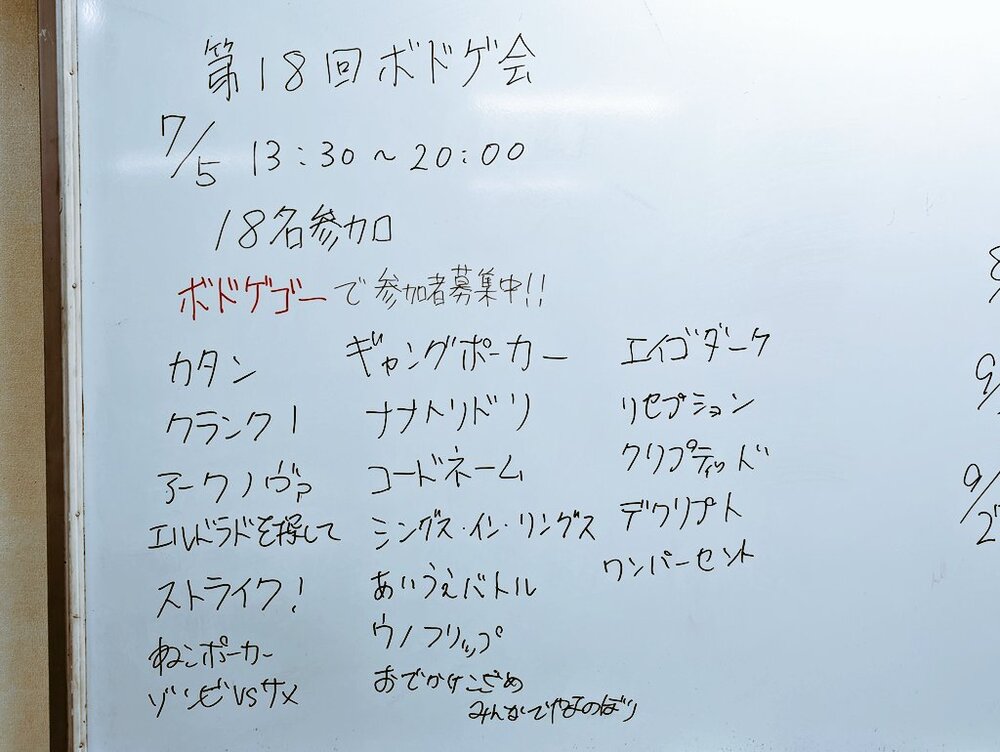 第18回ボドゲ会
7/5 13:30～20:00
18名参加
ボドゲゴーで参加者募集中!!
カタン
クランク!
アークノヴァ
エルドラドを探して
ストライク!
ねこポーカー
ゾンビvsサメ
ギャングポーカー
ナナトリドリ
コードネーム
シングス・イン・リングス
あいうえバトル
ウノフリップ
おでかけこざめ
みんなでやまのぼり
エイゴダーケ
リセプション
クリプティッド
デクリプト
ワンパーセント
9/